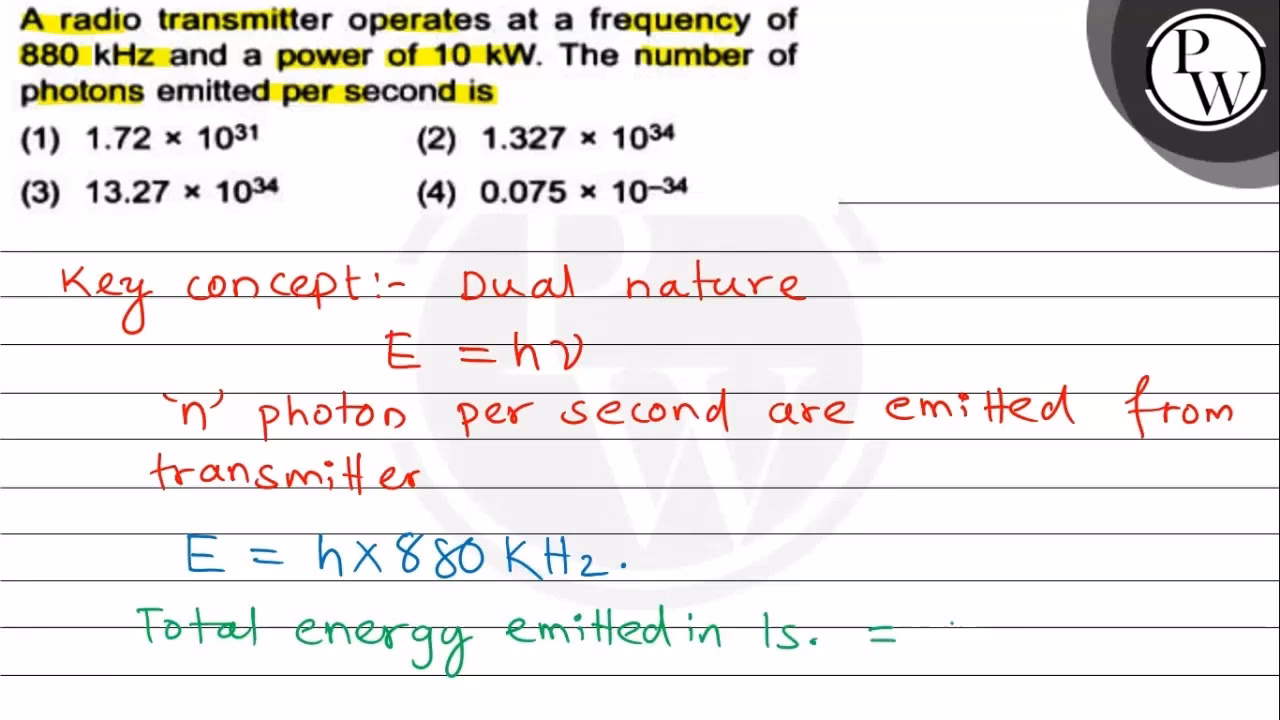 A radio transmitter operates at a frequency of
880 kHz and a power of 10 kW. The number of
photons emitted per second is
(1) 1.72 × 10³¹ (2) 1.327 × 10³⁴
(3) 13.27 × 10³⁴ (4) 0.075 × 10⁻³⁴
Key concept:- Dual nature
E = hν
'n' photon per second are emitted from
transmitter
E = h×880 KHz.
Total energy emitted in 1s. =
PW
PW